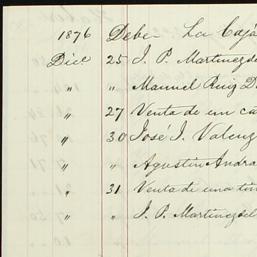 1876 Debe - La Caja
Dice 25 J. P. Martinez del
" " Manuel Ruiz D.
" 27 Venta de un ca
" 30 José J. Valenz
" " Agustin Andra
" 31 Venta de una
" " J. P. Martinez del